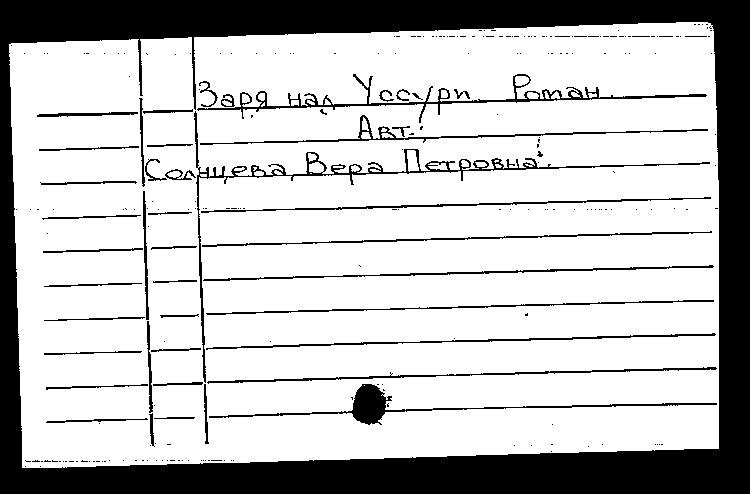 Заря над Уссури. Роман.
Авт.:
Солнцева, Вера Петровна.